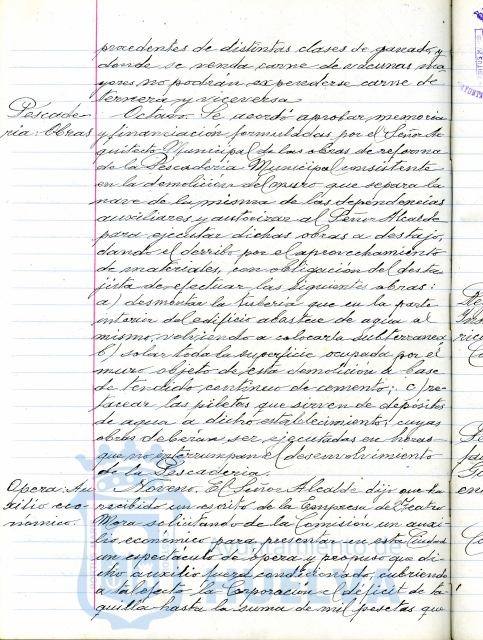 procedentes de distintas clases de ganado, y
donde se venda carne de vacunas ma-
yores no podrán expenderse carne de
ternera y viceversa.
Pescade-
ría: Obras
Octavo. Se acordó aprobar memoria
y financiación formuladas por el Señor Ar-
quitecto Municipal de las obras de reforma
de la Pescadería Municipal consistente
en la demolición del muro que separa la
nave de la misma de las dependencias
auxiliares y autorizar al Señor Alcalde
para ejecutar dichas obras a destajo,
dando el derribo por el aprovechamiento
de materiales, con obligación del desta-
jista de efectuar las siguientes obras:
a) desmontar la tubería que en la parte
interior del edificio abastece de agua al
mismo, volviendo a colocarla subterránea
b) solar toda la superficie ocupada por el
muro objeto de esta demolición a base
de tendido contínuo de cemento; c) re-
tacear las piletas que sirven de depósitos
de agua a dicho establecimiento; cuyas
obras deberán ser ejecutadas en horas
que no interrumpan el desenvolvimiento
de la Pescadería.
Opera: Au-
xilio eco-
nómico.
Noveno. El Señor Alcalde dijo que ha
recibido un escrito de la Empresa de Teatro
Mora solicitando de la Comisión un auxi-
lio económico para presentar en esta Ciudad
un espectáculo de ópera y propuso que di-
cho auxilio fuera condicionado, cubriendo
a tal efecto la Corporación el déficit de ta-
quilla hasta la suma de mil pesetas que